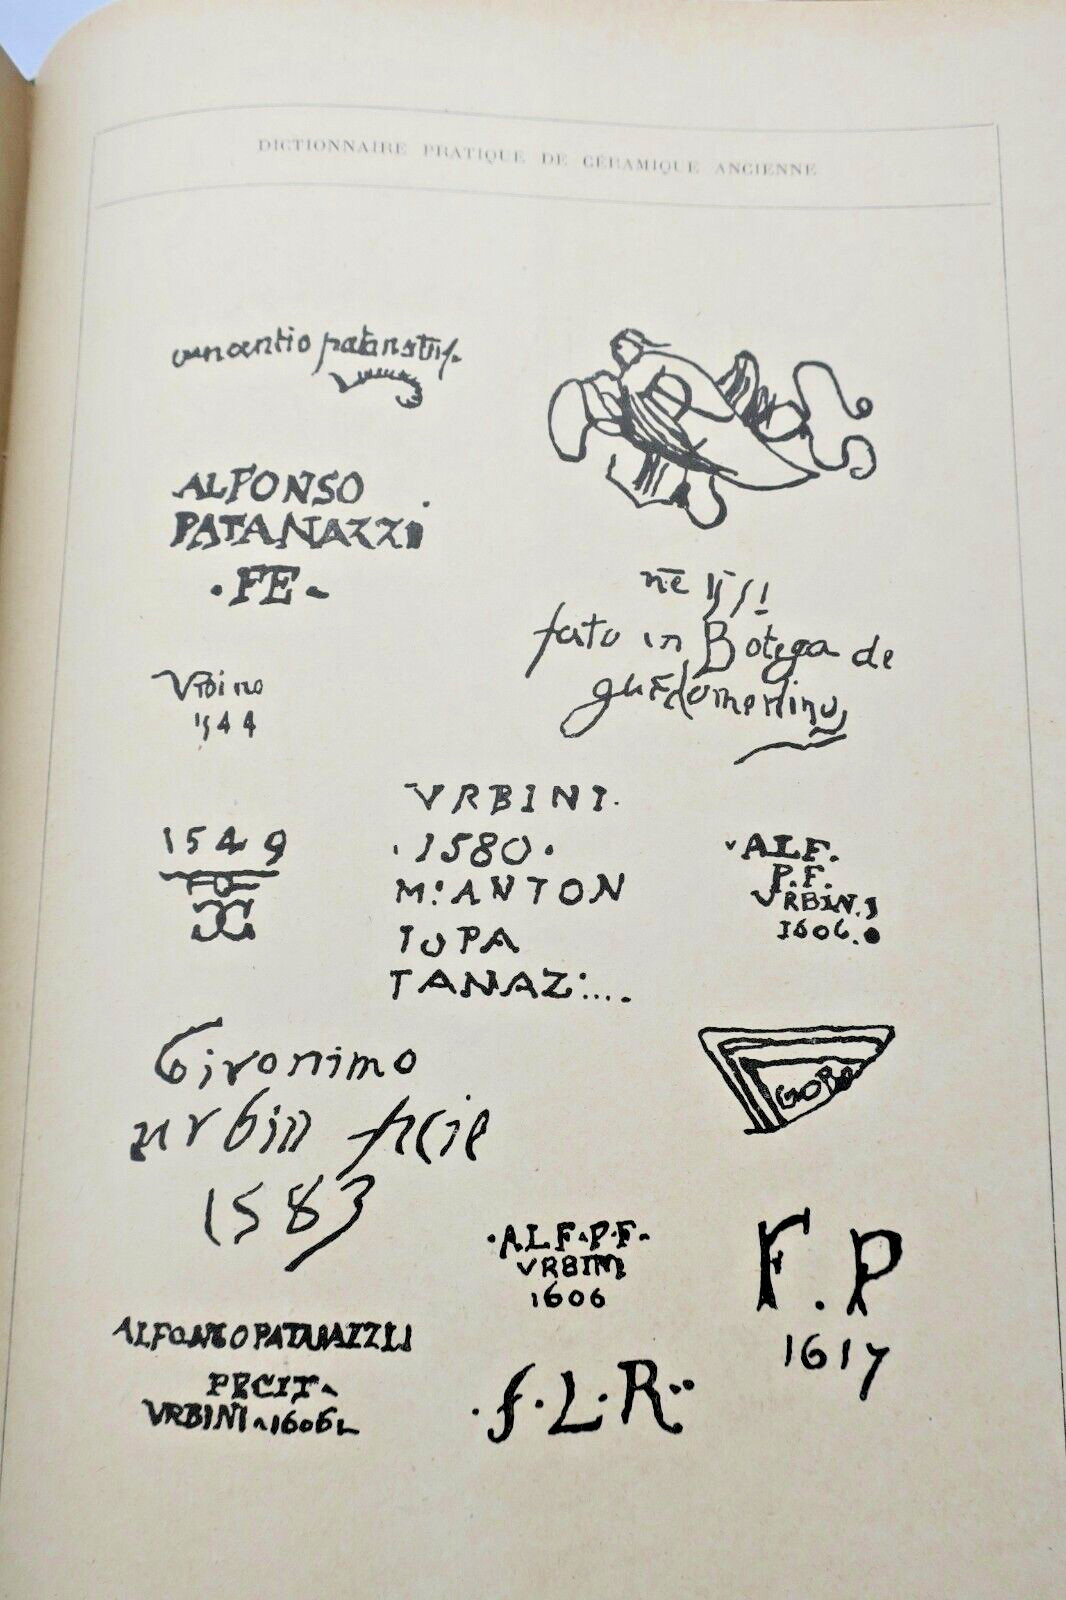 DICTIONNAIRE PRATIQUE DE CÉRAMIQUE ANCIENNE
ALFONSO
PATANAZZI
·FE·
fato in Botega de
Urbino
1544
VRBINI.
·1580·
M: ANTON
IO PA
TANAZ:...
1549
ALF.
P.F.
VRBINI
1606.
Gironimo
urbin fecie
1583
GOBO
·ALF·P·F·
VRBINI
1606
F.P
1617
ALFONSO PATANAZZI
FECIT
VRBINI 1606
·f·L·R··